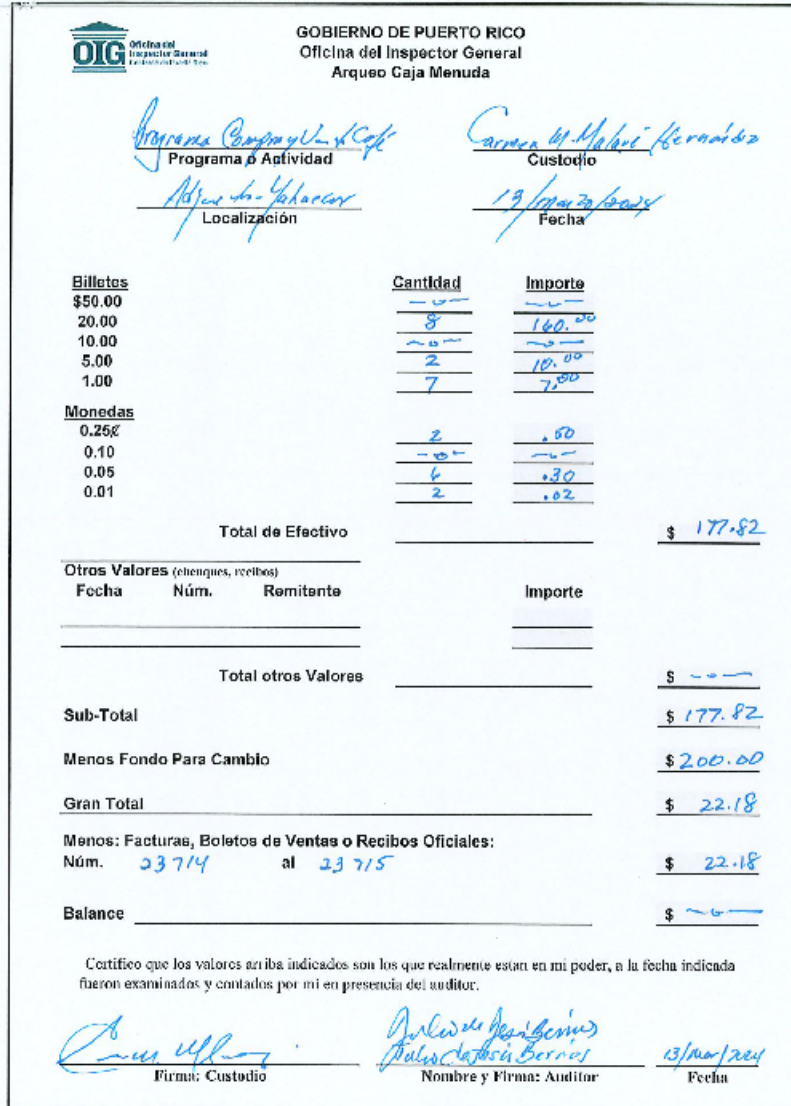 OIG Oficina del
Inspector General
GOBIERNO DE PUERTO RICO
Oficina del Inspector General
Arqueo Caja Menuda
Programa Compra y Café
Programa ó Actividad
Carmen M. Hernández
Custodio
Localización
13/marzo/2024
Fecha
Billetes Cantidad Importe
$50.00 -0- -0-
20.00 8 160.00
10.00 -0- -0-
5.00 2 10.00
1.00 7 7.00
Monedas
0.25¢ 2 .50
0.10 -0- -0-
0.05 6 .30
0.01 2 .02
Total de Efectivo $ 177.82
Otros Valores (chenques, recibos)
Fecha Núm. Remitente Importe
Total otros Valores $ -0-
Sub-Total $ 177.82
Menos Fondo Para Cambio $ 200.00
Gran Total $ 22.18
Menos: Facturas, Boletos de Ventas o Recibos Oficiales:
Núm. 23714 al 23715 $ 22.18
Balance $ -0-
Certifico que los valores arriba indicados son los que realmente estan en mi poder, a la fecha indicada
fueron examinados y contados por mi en presencia del auditor.
Julio de Jesús Berríos
Julio de Jesús Berríos 13/mar/2024
Firma: Custodio Nombre y Firma: Auditor Fecha